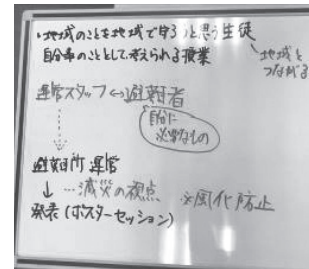 ・地域のことを地域で守ろうと思う生徒
自分事のこととして考えられる授業
地域と
つながる
運営スタッフ↔避難者
自分に
必要なもの
避難所運営
↓…減災の視点
発表(ポスターセッション)
※風化防止